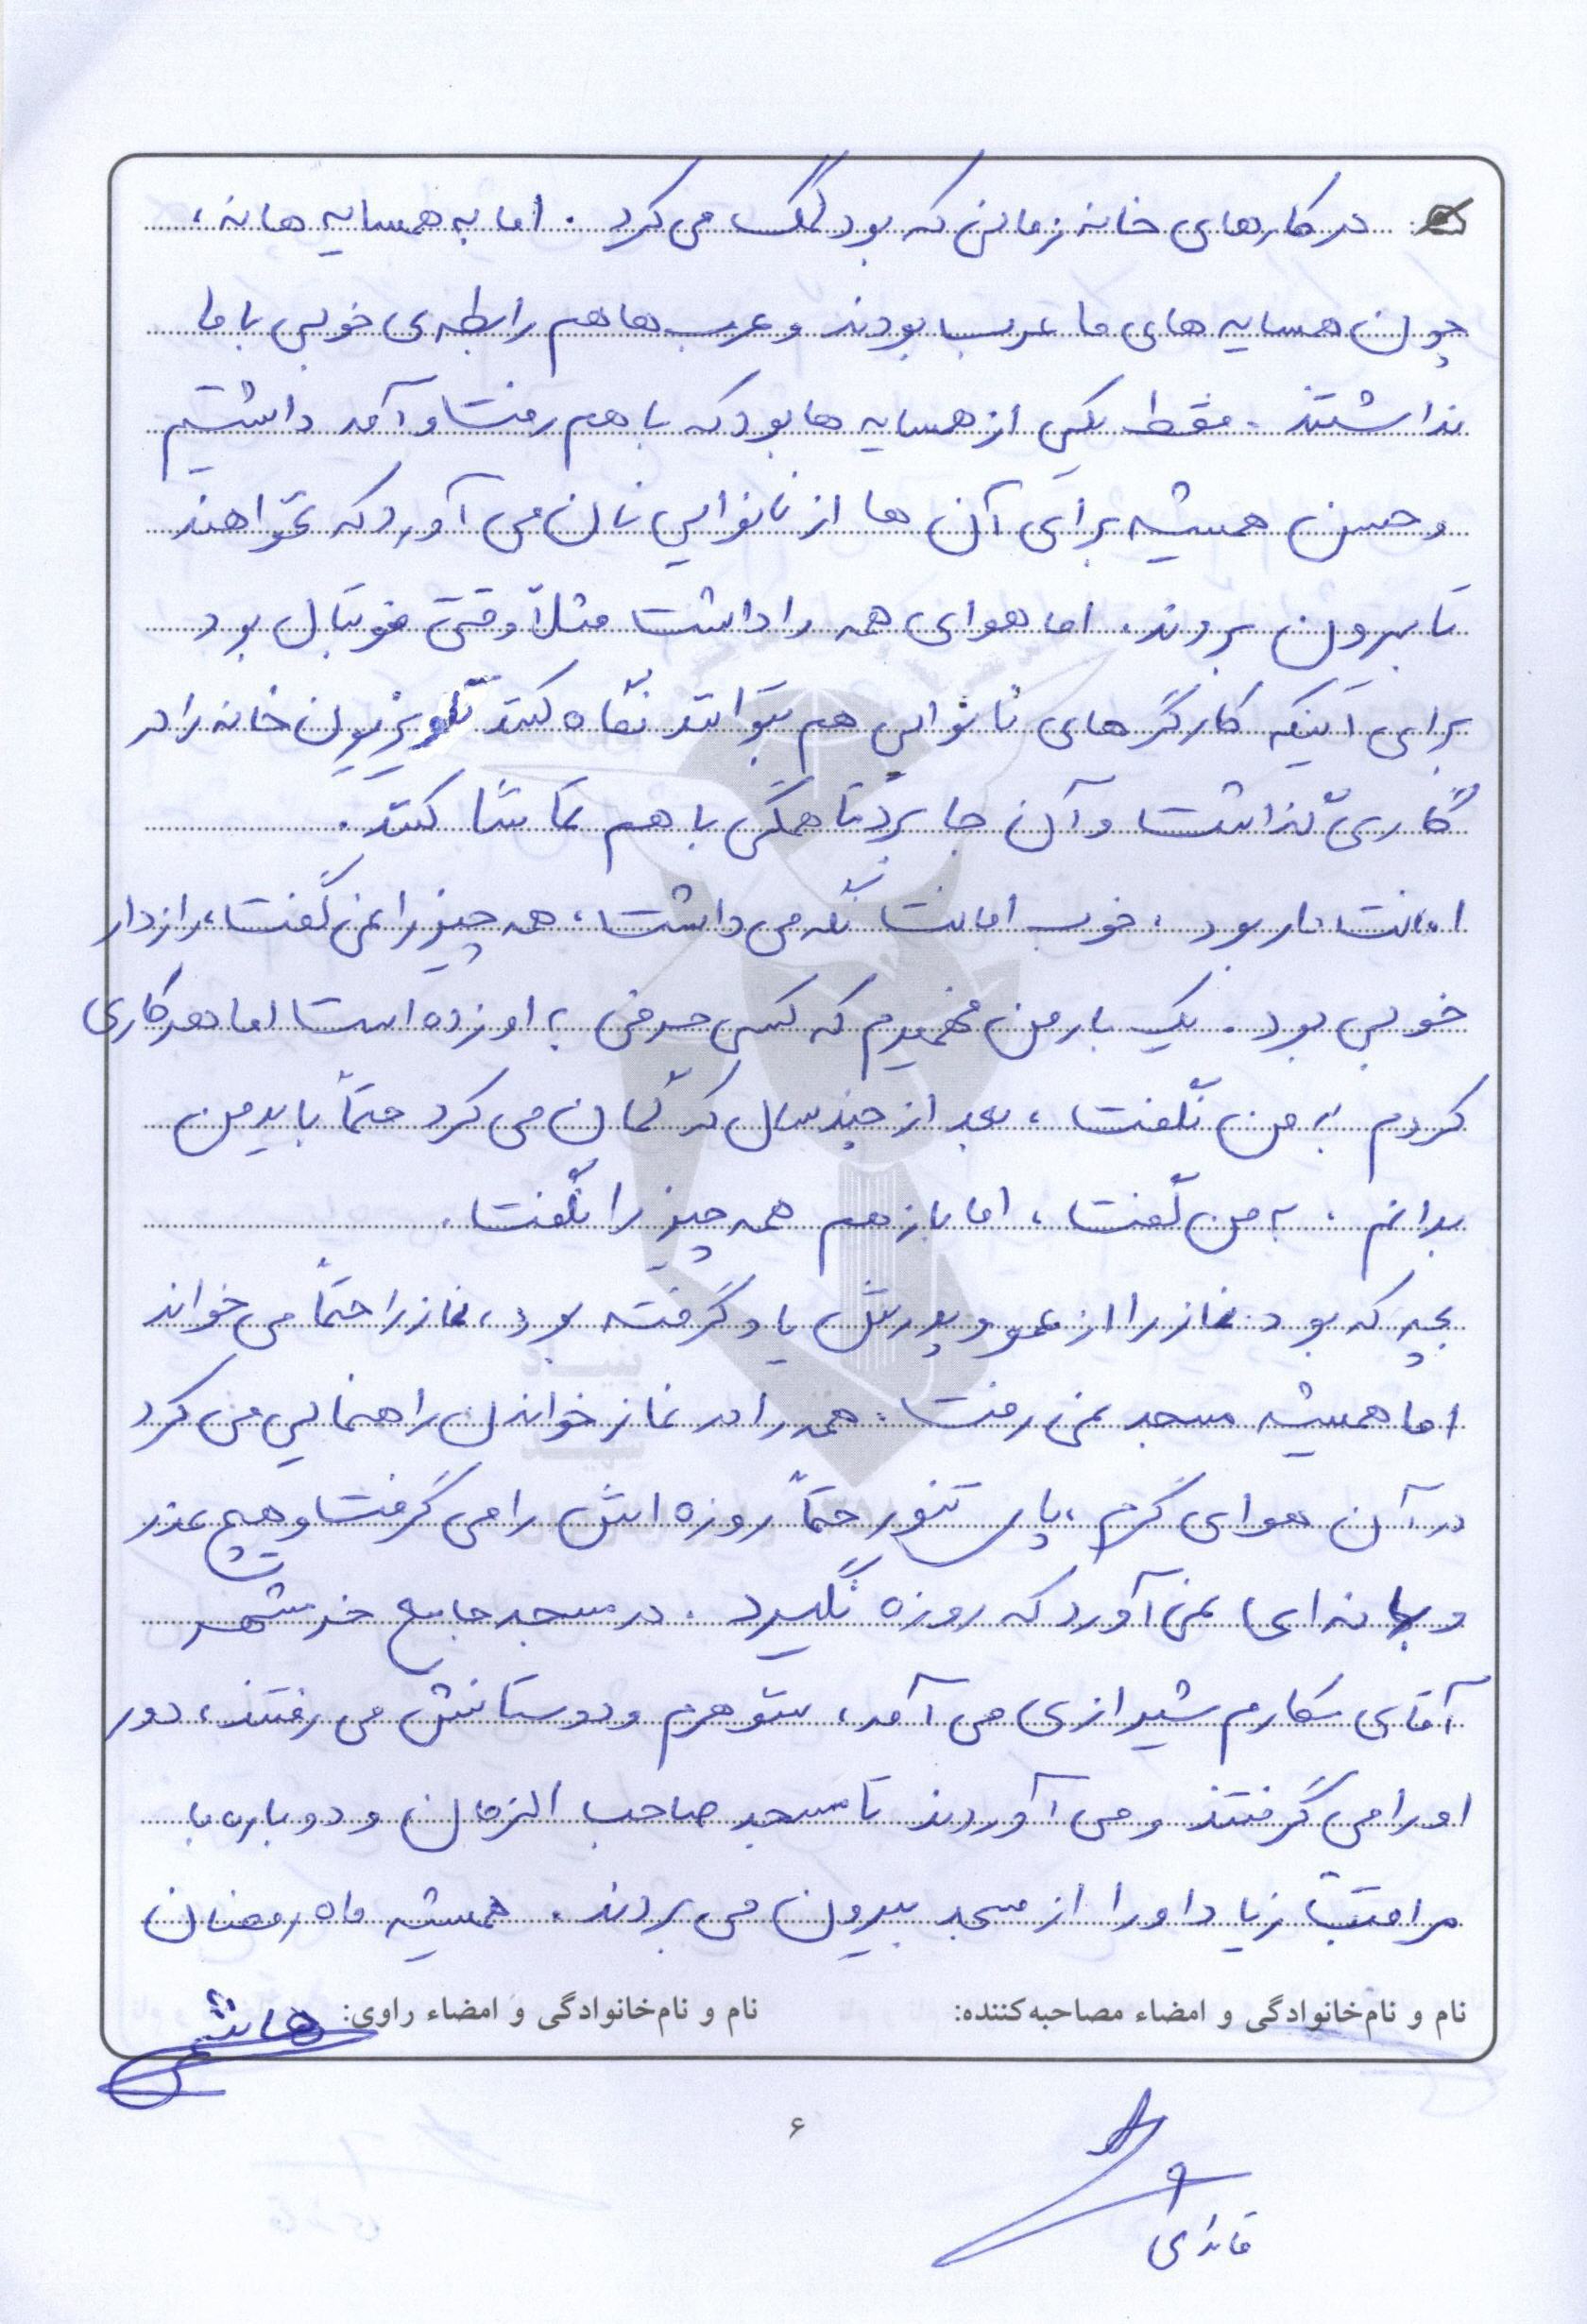 در کارهای خانه زمانی که بود کمک می کرد. اما به همسایه ها نه،
چون همسایه های ما عرب بودند و عرب ها هم رابطه ی خوبی با ما
نداشتند. فقط یکی از همسایه ها بود که با هم رفت و آمد داشتیم
و حسن همیشه برای آن ها از نانوایی نان می آورد که نخواهند
تا بیرون بروند. اما هوای همه را داشت مثلاً وقتی فوتبال بود
برای اینکه کارگرهای نانوایی هم بتوانند نگاه کنند تلویزیون خانه را در
گاری گذاشت و آن جا برد تا همگی با هم تماشا کنند.
امانت دار بود، خوب امانت نگه می داشت، همه چیز را نمی گفت، رازدار
خوبی بود. یک بار من فهمیدم که کسی حرفی به او زده است اما هر کاری
کردم به من نگفت، بعد از چند سال که گمان می کرد حتماً باید من
بدانم، به من گفت، اما باز هم همه چیز را نگفت.
بچه که بود نماز را از عمو و پدرش یاد گرفته بود، نماز را حتماً می خواند
اما همیشه مسجد نمی رفت. همه را در نماز خواندن راهنمایی می کرد
در آن هوای گرم، پای تنور حتماً روزه اش را می گرفت و هیچ عذر
و بهانه ای نمی آورد که روزه نگیرد. در مسجد جامع خرمشهر
آقای مکارم شیرازی می آمد، شوهرم و دوستانش می رفتند، دور
او را می گرفتند و می آوردند تا مسجد صاحب الزمان و دوباره با
مراقبت زیاد او را از مسجد بیرون می بردند. همیشه ماه رمضان
نام و نام خانوادگی و امضاء مصاحبه کننده: نام و نام خانوادگی و امضاء راوی:
۶